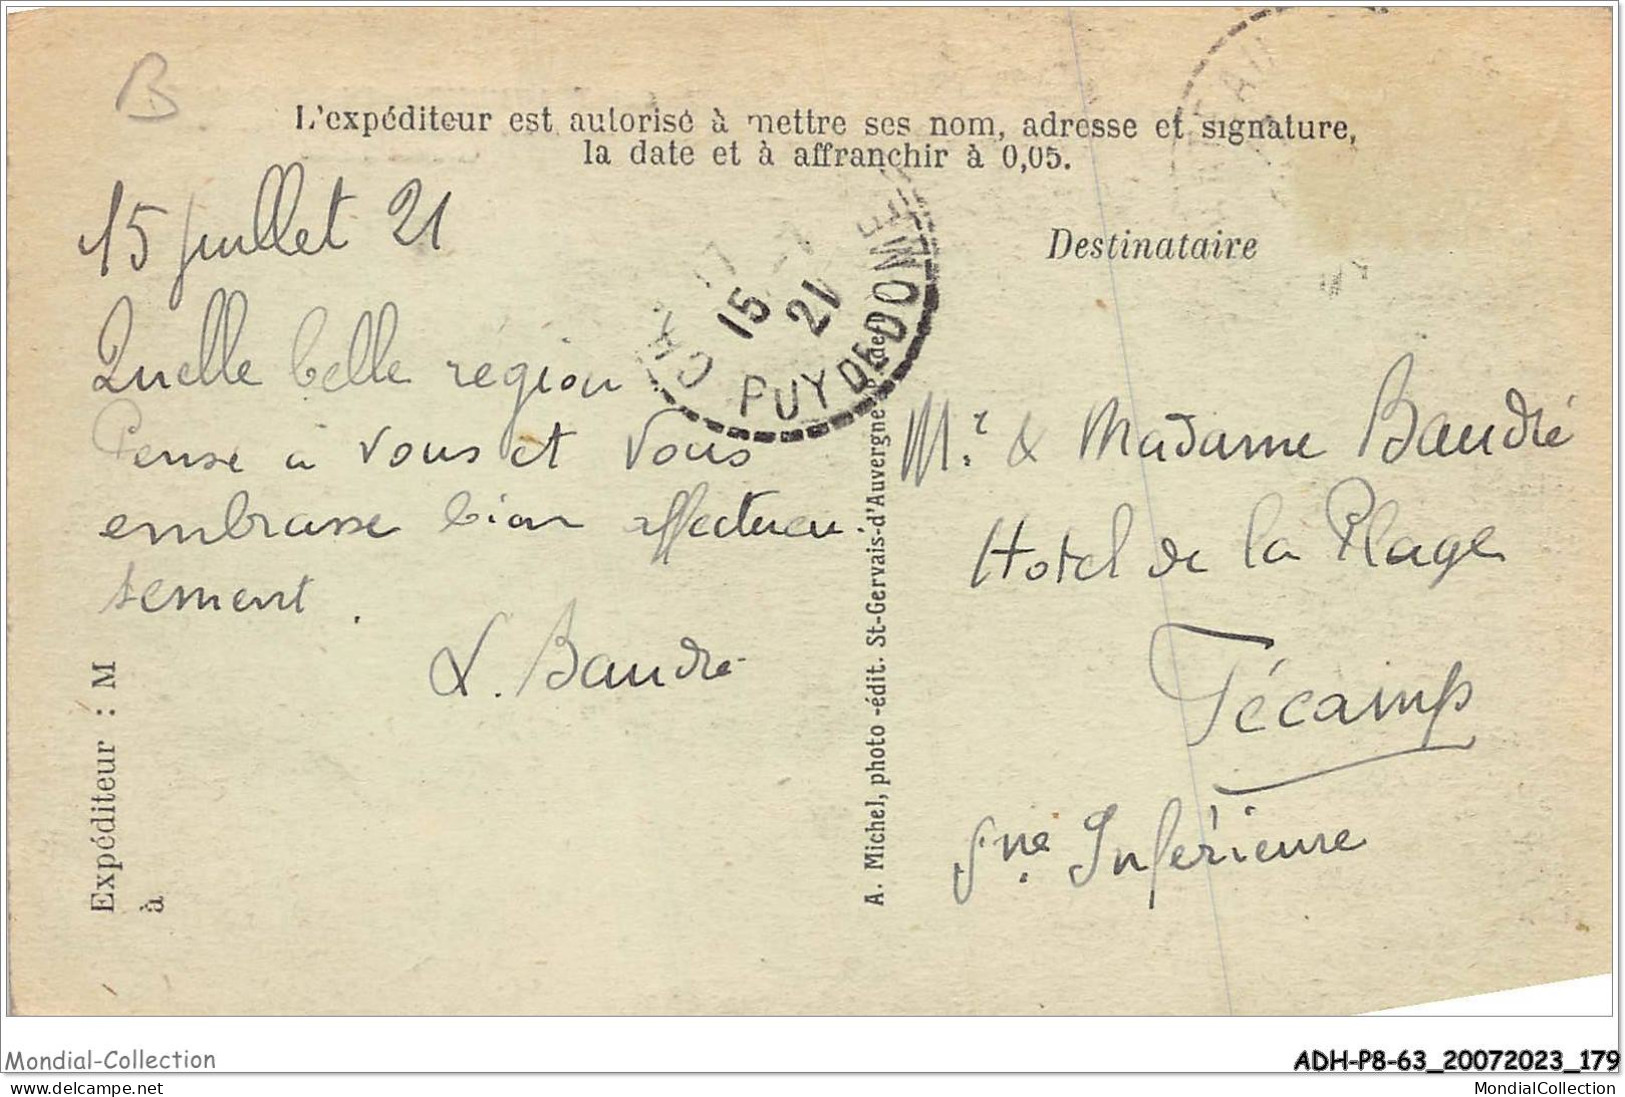 B
L'expéditeur est autorisé à mettre ses nom, adresse et signature,
la date et à affranchir à 0,05.
15 juillet 21
Quelle belle région
Pense à vous et vous
embrasse bien affectueu-
sement.
L. Baudré
Expéditeur : M
à
17
15 -7
21
PUY DE DOME
A. Michel, photo-édit. St-Gervais-d'Auvergne
Destinataire
Mr. & Madame Baudré
Hotel de la Plage
Fécamp
Sne. Inférieure
Mondial-Collection
www.delcampe.net
ADH-P8-63_20072023_179
MondialCollection